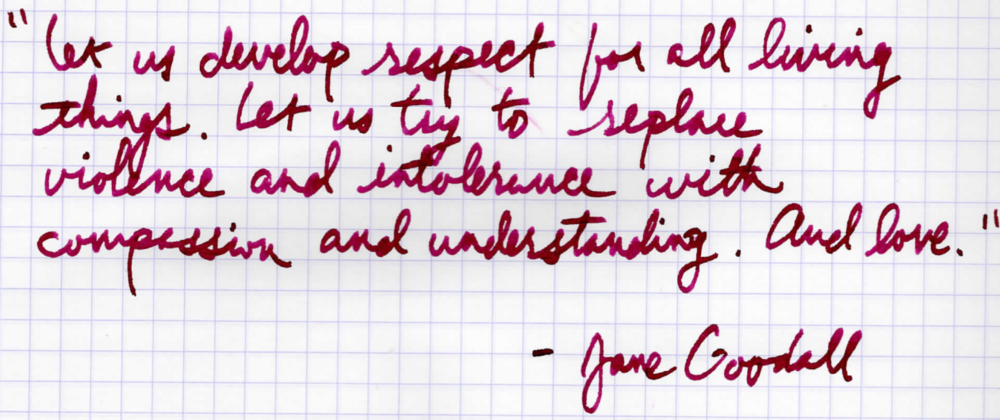 "Let us develop respect for all living
things. Let us try to replace
violence and intolerance with
compassion and understanding. And love."
- Jane Goodall